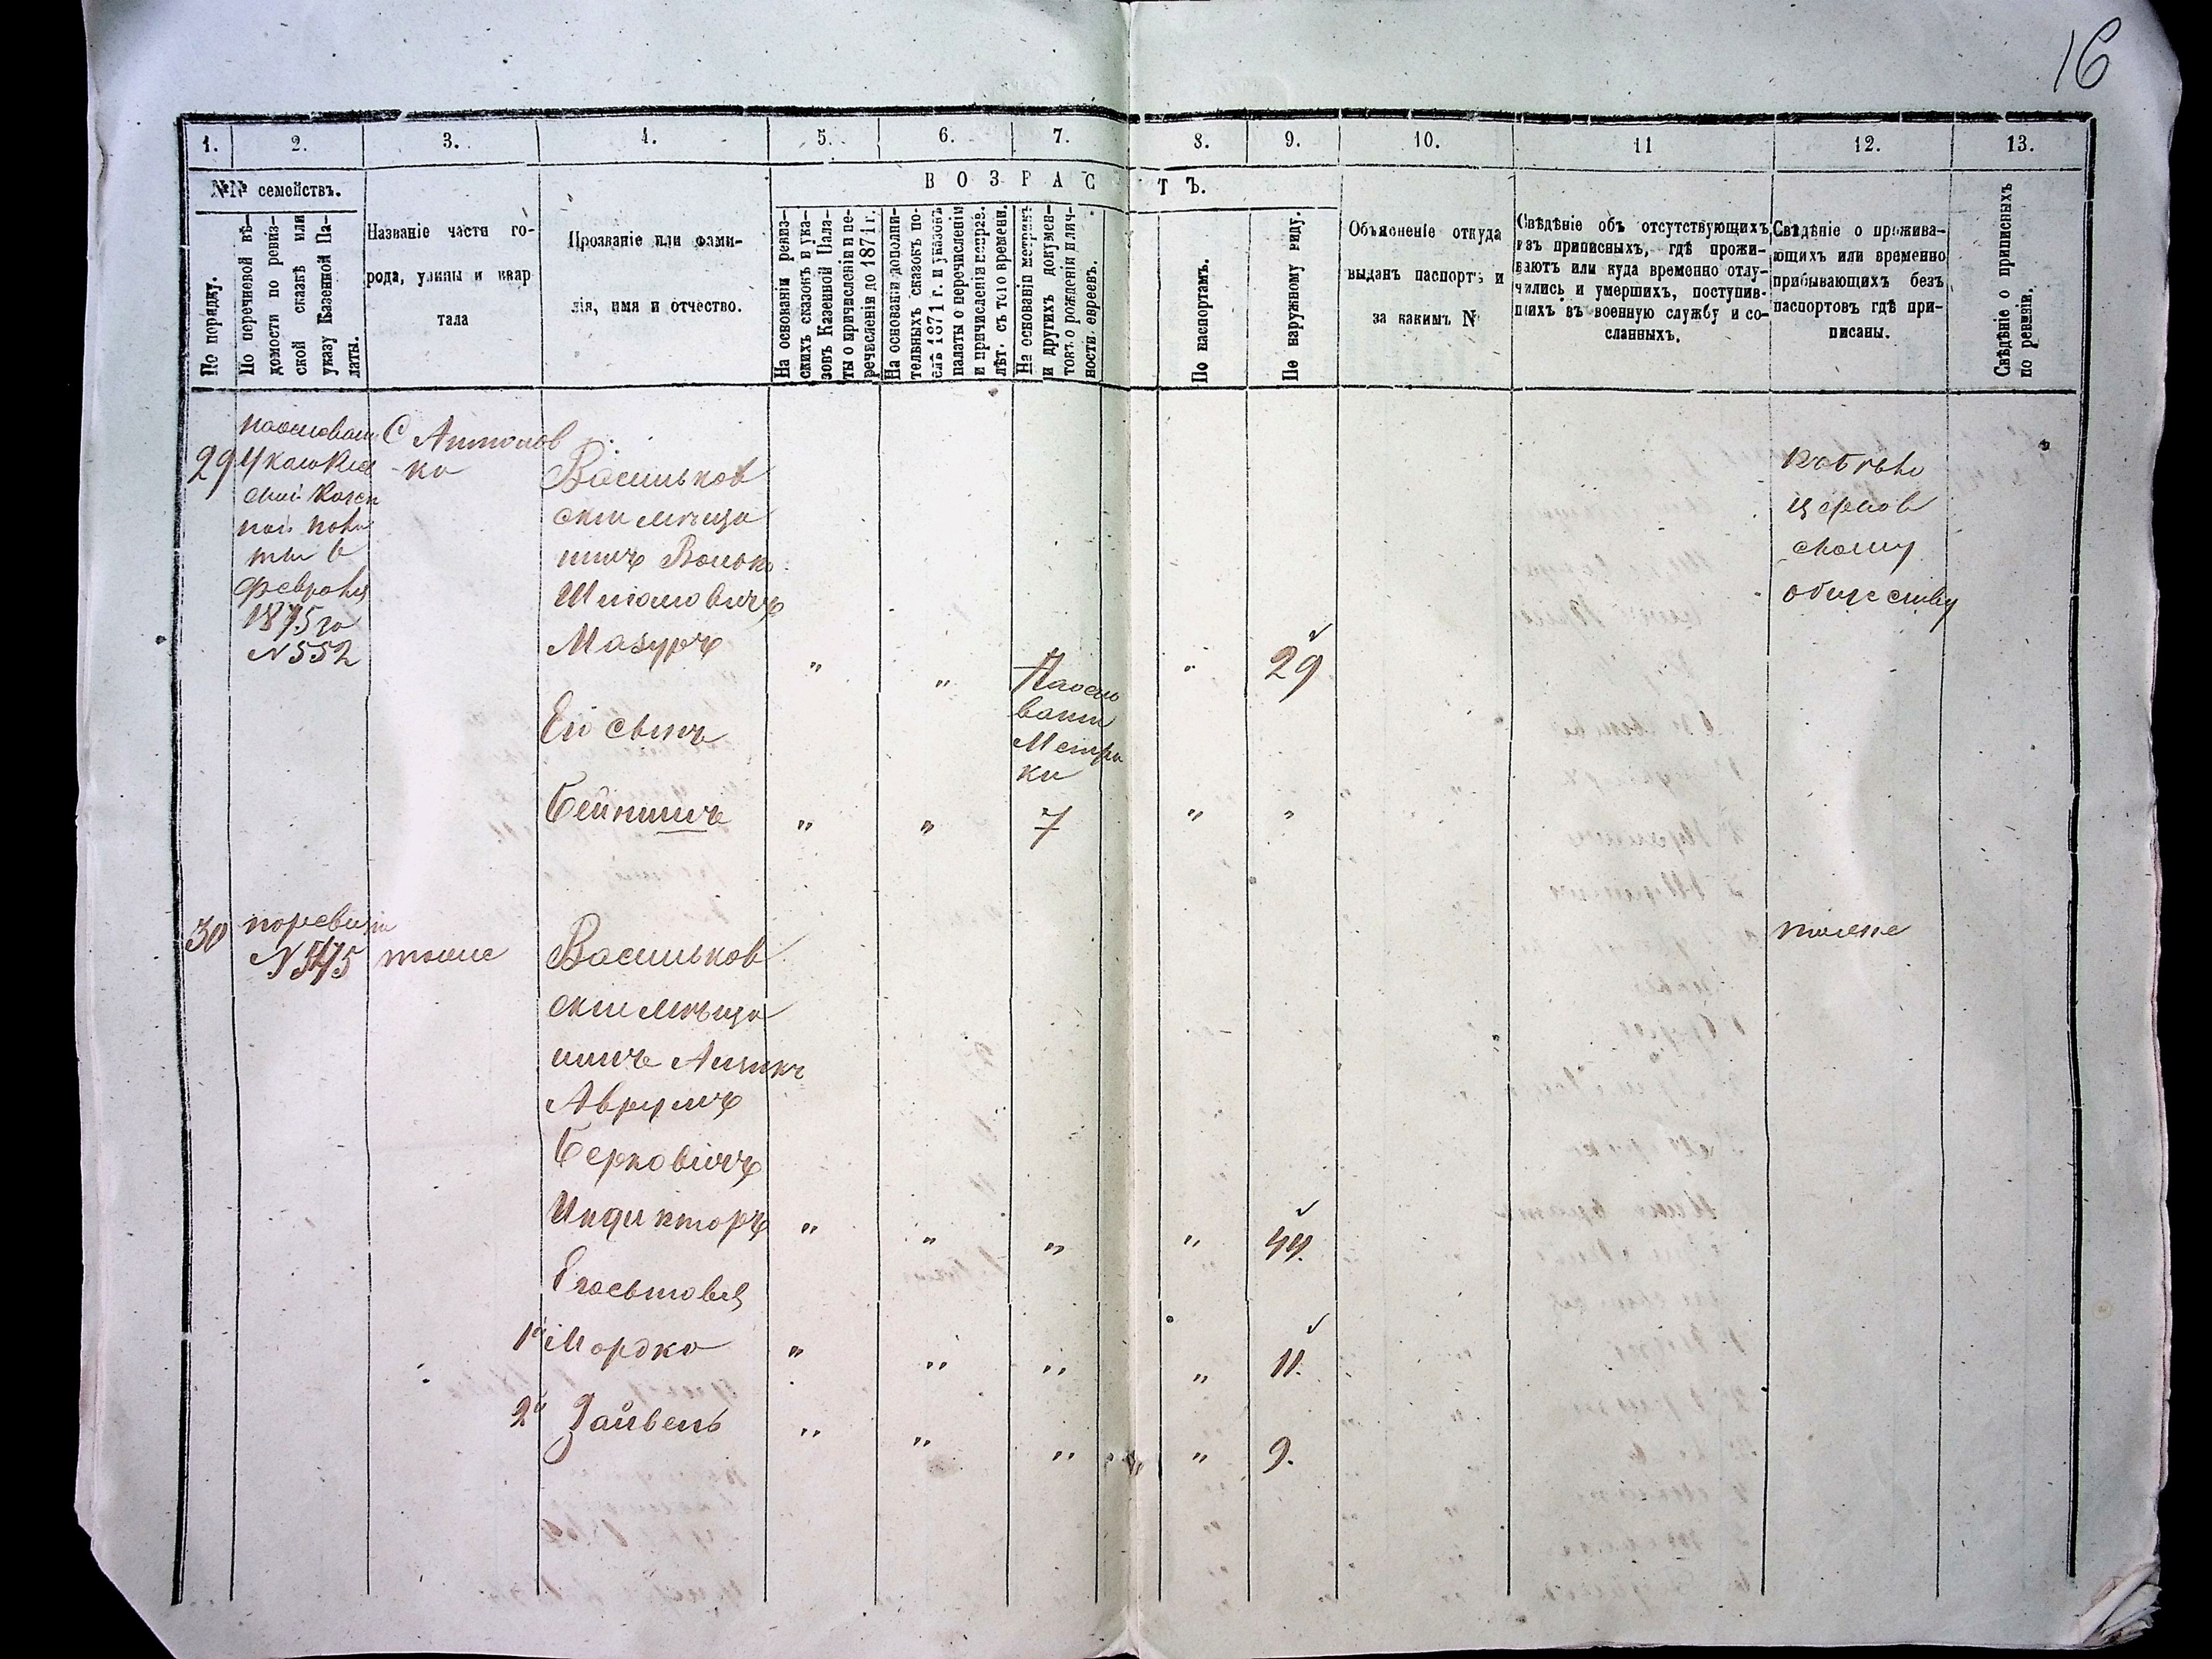 16
1. 2. 3. 4. 5. 6. 7. 8. 9. 10. 11 12. 13.
№№ семействъ.
По порядку.
По перечневой вѣ-
домости по ревиз-
ской сказкѣ или
указу Казенной Па-
латы.
Названіе части го-
рода, улицы и квар
тала
Прозваніе или фами-
лія, имя и отчество.
ВОЗРАСТЪ.
На основаніи ревиз-
скихъ сказокъ и ука-
зовъ Казенной Пала-
ты о причисленіи и пе-
речисленіи до 1871 г.
На основаніи дополни-
тельныхъ сказокъ по-
слѣ 1871 г. и указовъ
палаты о перечисленіи
и причисленіи неправ.
лѣт. съ того времени.
На основаніи метрикъ
и другихъ докумен-
товъ о рожденіи и лич-
ности евреевъ.
По паспортамъ.
По наружному виду.
Объясненіе откуда
выданъ паспортъ и
за какимъ №
Свѣдѣніе объ отсутствующихъ
изъ приписныхъ, гдѣ прожи-
ваютъ или куда временно отлу-
чились и умершихъ, поступив-
шихъ въ военную службу и со-
сланныхъ.
Свѣдѣніе о прожива-
ющихъ или временно
прибывающихъ безъ
паспортовъ гдѣ при-
писаны.
Свѣдѣніе о приписныхъ
по ревизіи.
29
Указа Кіев
ской Казен
ной Пала
ты 6
февраля
1875 го
N 552
С Антонов
ка
Васильков
скій мѣща
нинъ Волько
Шмаловичъ
Мазуръ
29
Его сынъ
На осно
ваніи
Метри
ки
Бейнишъ
7
церков
скому
обществу
30
по ревизіи
N 545
тоже
Васильков
скій мѣща
нинъ Аицикъ
Аврумъ
Берковичъ
Индикторъ
44.
Его сыновья
1й Мордко
11.
2й Зайвель
9.
тоже